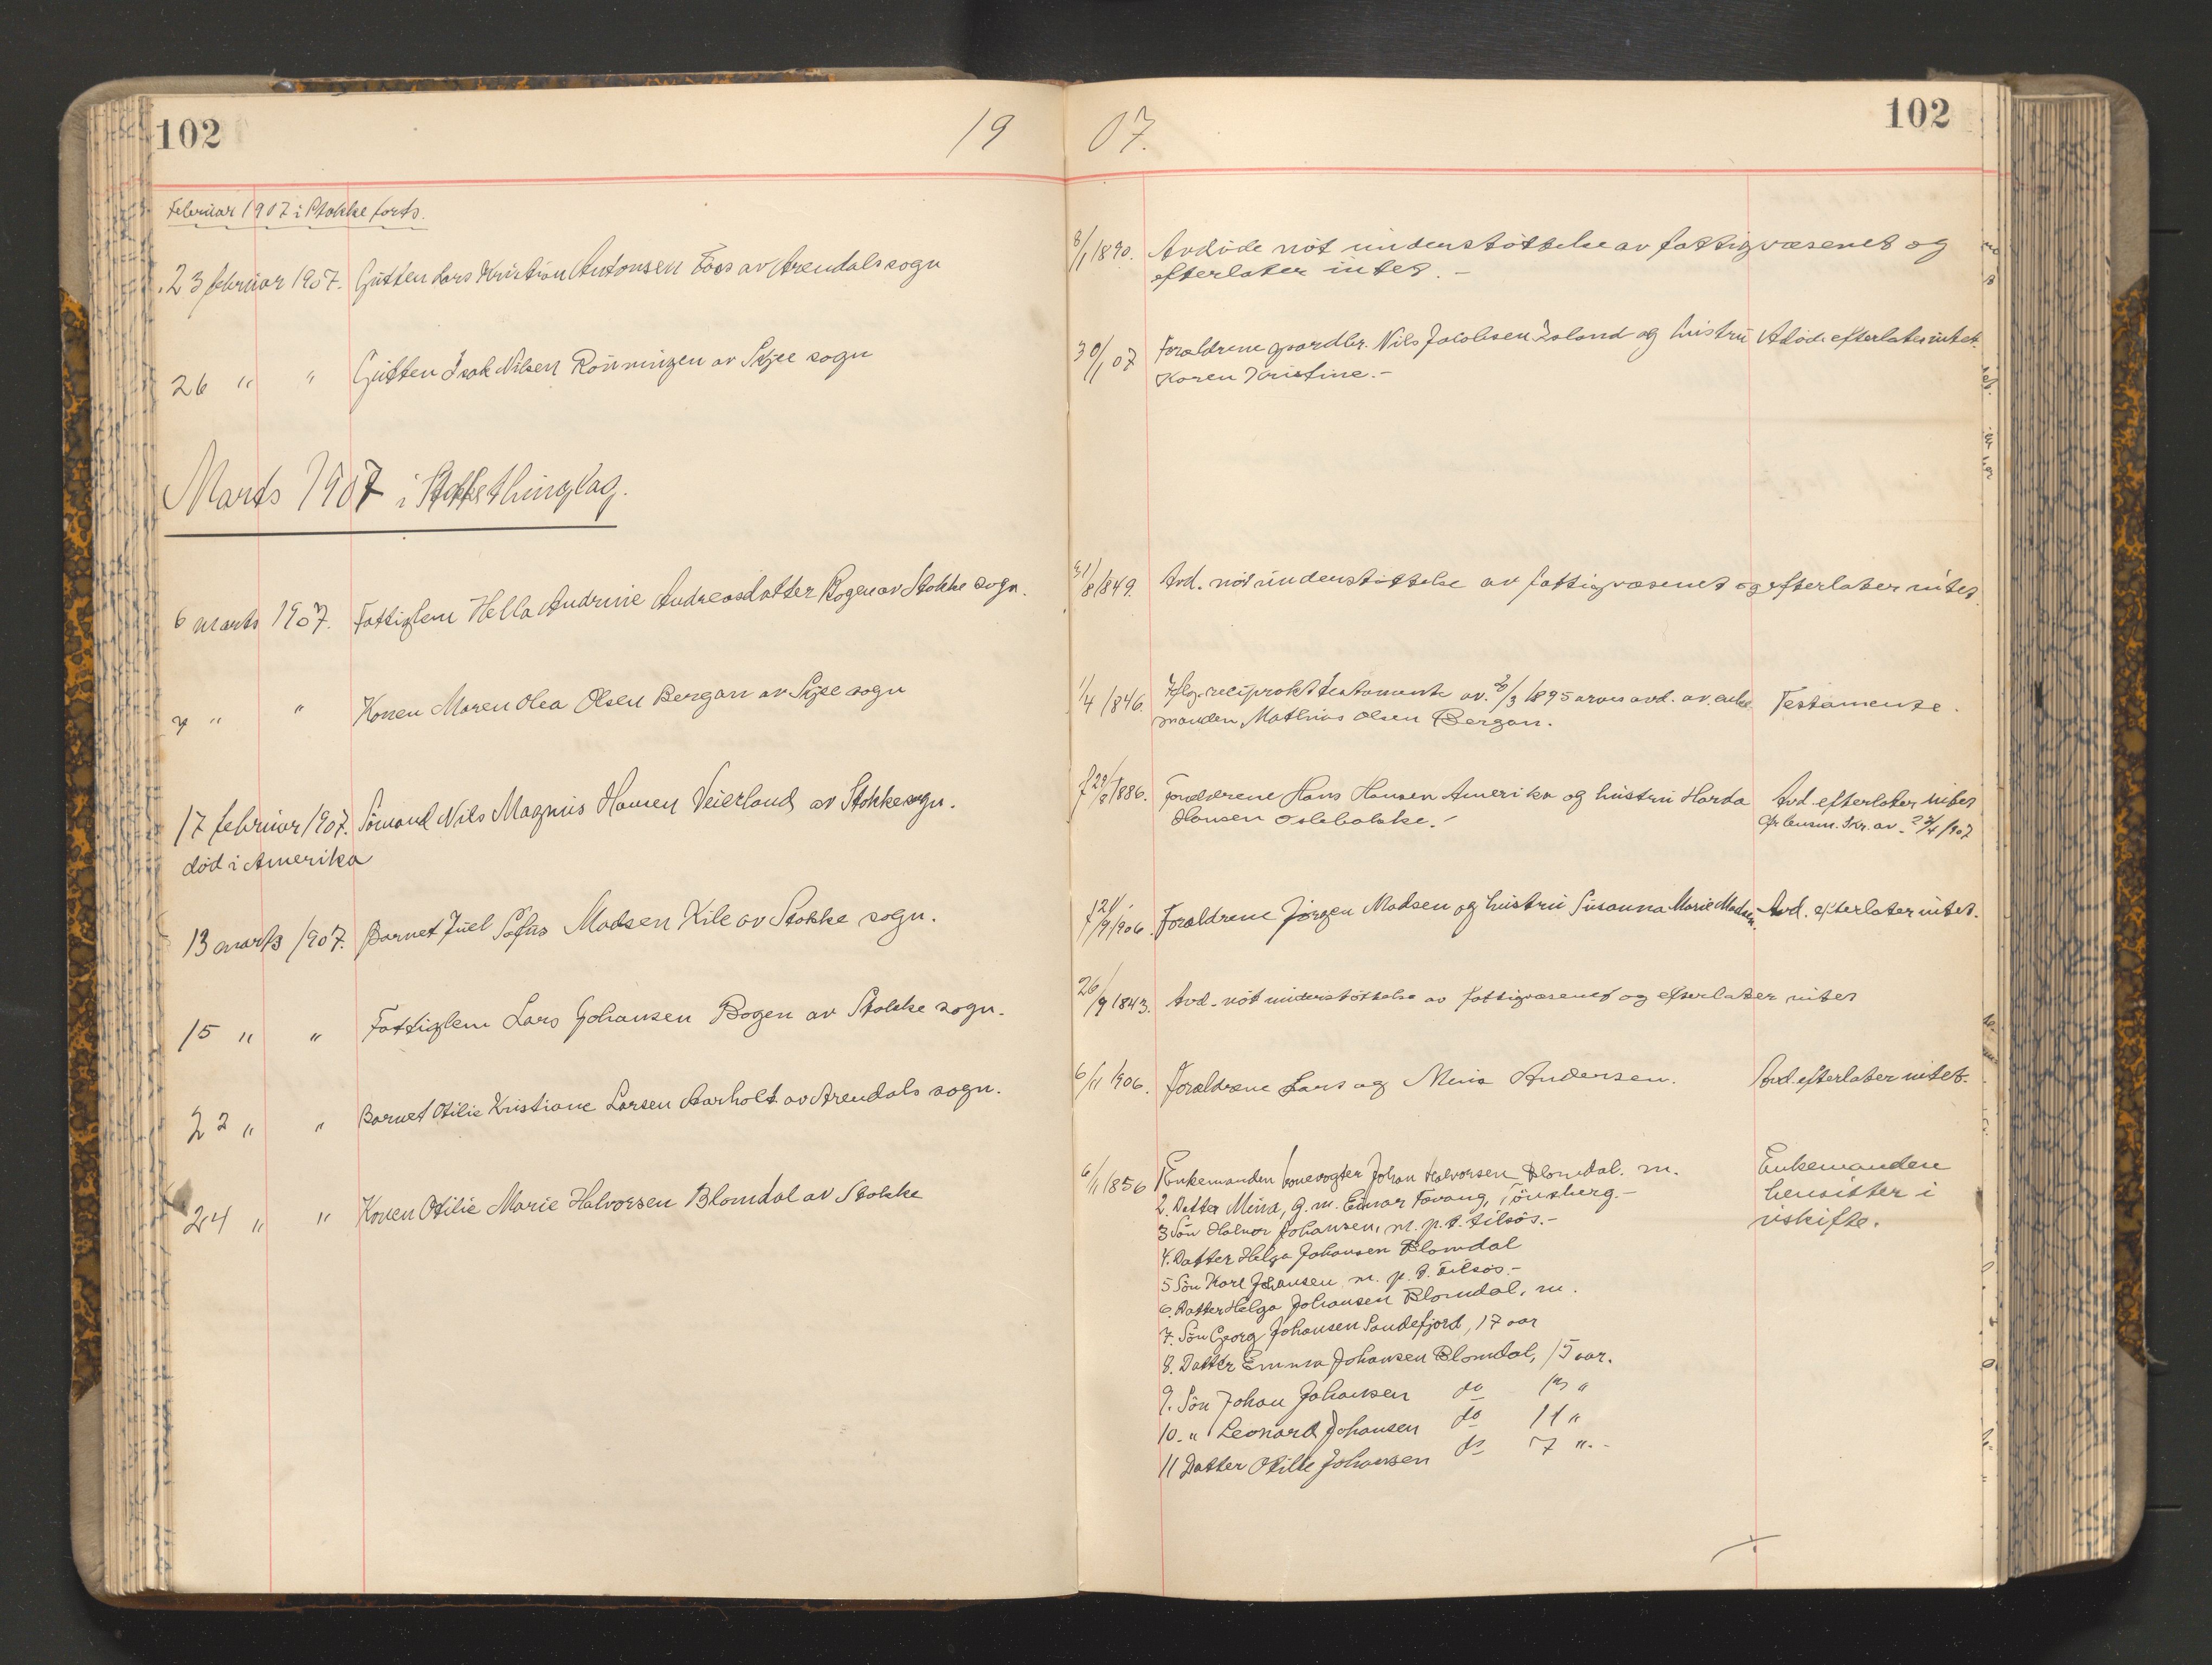 102
19 07.
102
Februar 1907 i Stokke forts.
23 februar 1907. Gutten Lars Kristian Antonsen Foss av Arendals sogn
8/1 1890. Avdöde nöt understöttelse av fattigvæsenet og
efterlater intet.-
26 " " Gutten Isak Nilsen Rönningen av Skjee sogn
30/1 07 Forældrene gaardbr. Nils Jacobsen og hustru Avdöde efterlater intet.
Karen Kristine.-
Marts 1907 i Stokke thinglag.
6 marts 1907. Fattiglem Hella Andrine Andreasdatter Bogen av Stokke sogn.
31/8 1849. Avd. nöt understöttelse av fattigvæsenet og efterlater intet.
7 " " Konen Maren Olea Olsen Bergan av Skjee sogn
1/4 1846. Iflg. reciprokt testamente av /3 1895 arves avd. av enke-
manden Mathias Olsen Bergan. Testamente.
17 februar 1907. Sömand Nils Magnus Hansen Veierland av Stokke sogn.
död i Amerika
f 29/8 1886. Forældrene Hans Hansen Amerika og hustru Harda Avd. efterlater intet
Hansen Oslebakke.- Ifr lensm. skr. av /4 1907
13 marts 1907. Barnet Juel Sofus Madsen Kile av Stokke sogn.
f 21/9 1906. Forældrene Jörgen Madsen og hustru Susanna Marie Madsen. Avd. efterlater intet.
15 " " Fattiglem Lars Johansen Bogen av Stokke sogn.
26/9 1843. Avd. nöt understöttelse av fattigvæsenet og efterlater intet
22 " " Barnet Otilie Kristiane Larsen Aarholt av Arendals sogn.
6/11 1906. Forældrene Lars og Mina Andersen. Avd. efterlater intet.
24 " " Konen Otilie Marie Halvorsen Blomdal av Stokke
6/11 1856 1 Enkemanden banevogter Johan Halvorsen Blomdal. m. Enkemanden
2. Datter Mina, g. m. Einar Favang, Tönsberg.- hensitter i
3 Sön Halvor Johansen, m. p. t. tilsös.- uskifte.
4. Datter Helga Johansen Blomdal
5 Sön Karl Johansen m. p. t. tilsös.-
6. Datter Helga Johansen Blomdal, m.
7. Sön Georg Johansen Sandefjord, 17 aar
8. Datter Emma Johansen Blomdal, 15 aar.
9. Sön Johan Johansen do 13 "
10. " Leonard Johansen do 11 "
11 Datter Otilie Johansen do 7 ".-